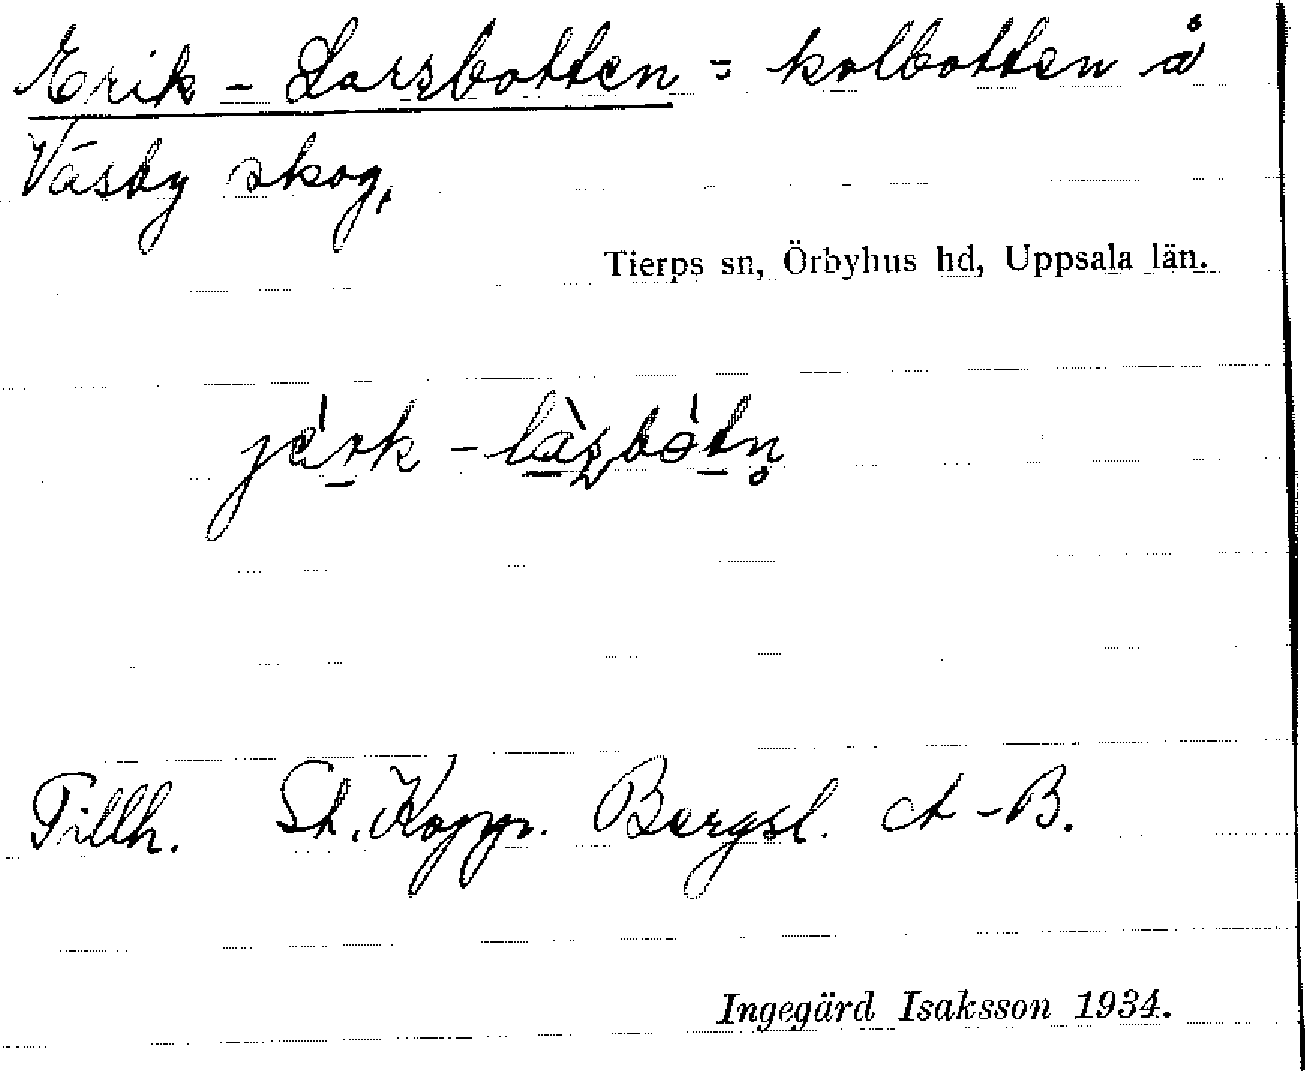 Erik-Larsbotten = kolbotten å
Väsby skog.
Tierps sn, Örbyhus hd, Uppsala län.
Tillh. St. Kopp. Bergsl. A-B.
Ingegärd Isaksson 1934.